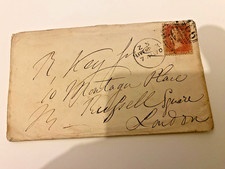 R Key
10 Montague Place
Russell Square
London